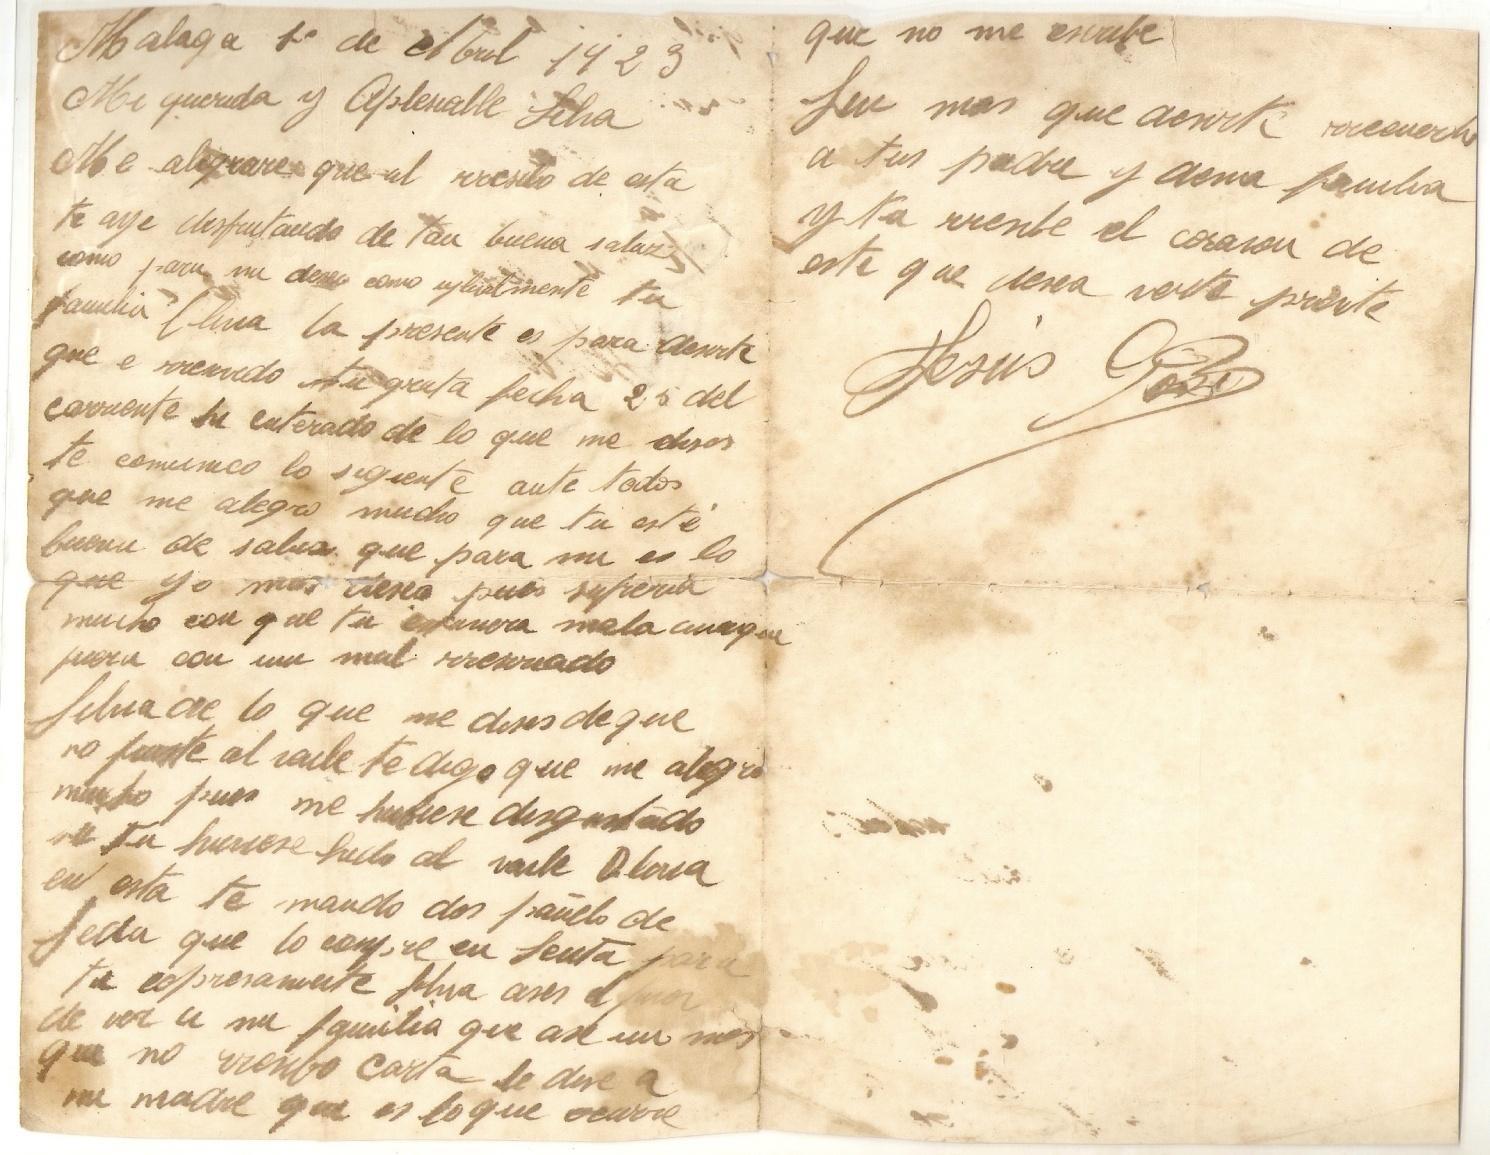 Malaga 1º de Abril 1923
Mi querida y Aplesiable Silvia
Me alegrare que al rresibo de esta
te aye disfrutando de tan buena saluz
como para mi deseo como ygualmente tu
familia Silvia la presente es para desirte
que e rresivido tu grata fecha 25 del
corriente he enterado de lo que me dises
te comunico lo siguiente ante todos
que me alegro mucho que tu esté
buena de salus que para mi es lo
que yo mas deseo pues sufriria
mucho con que tu estuviera mala aunque
fuera con un mal rresfriado
Silvia de lo que me dises de que
no fuiste al vaile te digo que me alegro
mucho pues me hubiese disgustado
si tu huviese hido al vaile Silvia
en esta te mando dos pañelo de
Seda que lo compre en Seuta para
tu espresamente Silvia ases el favor
de ver a mi familia que ase un mes
que no rresibo carta le dise a
mi madre que es lo que ocurre
que no me escribe
Sin mas que desirte rrecuerdo
a tus padre y dema familia
y tu rresibe el corason de
este que desea verte pronte
Jesús